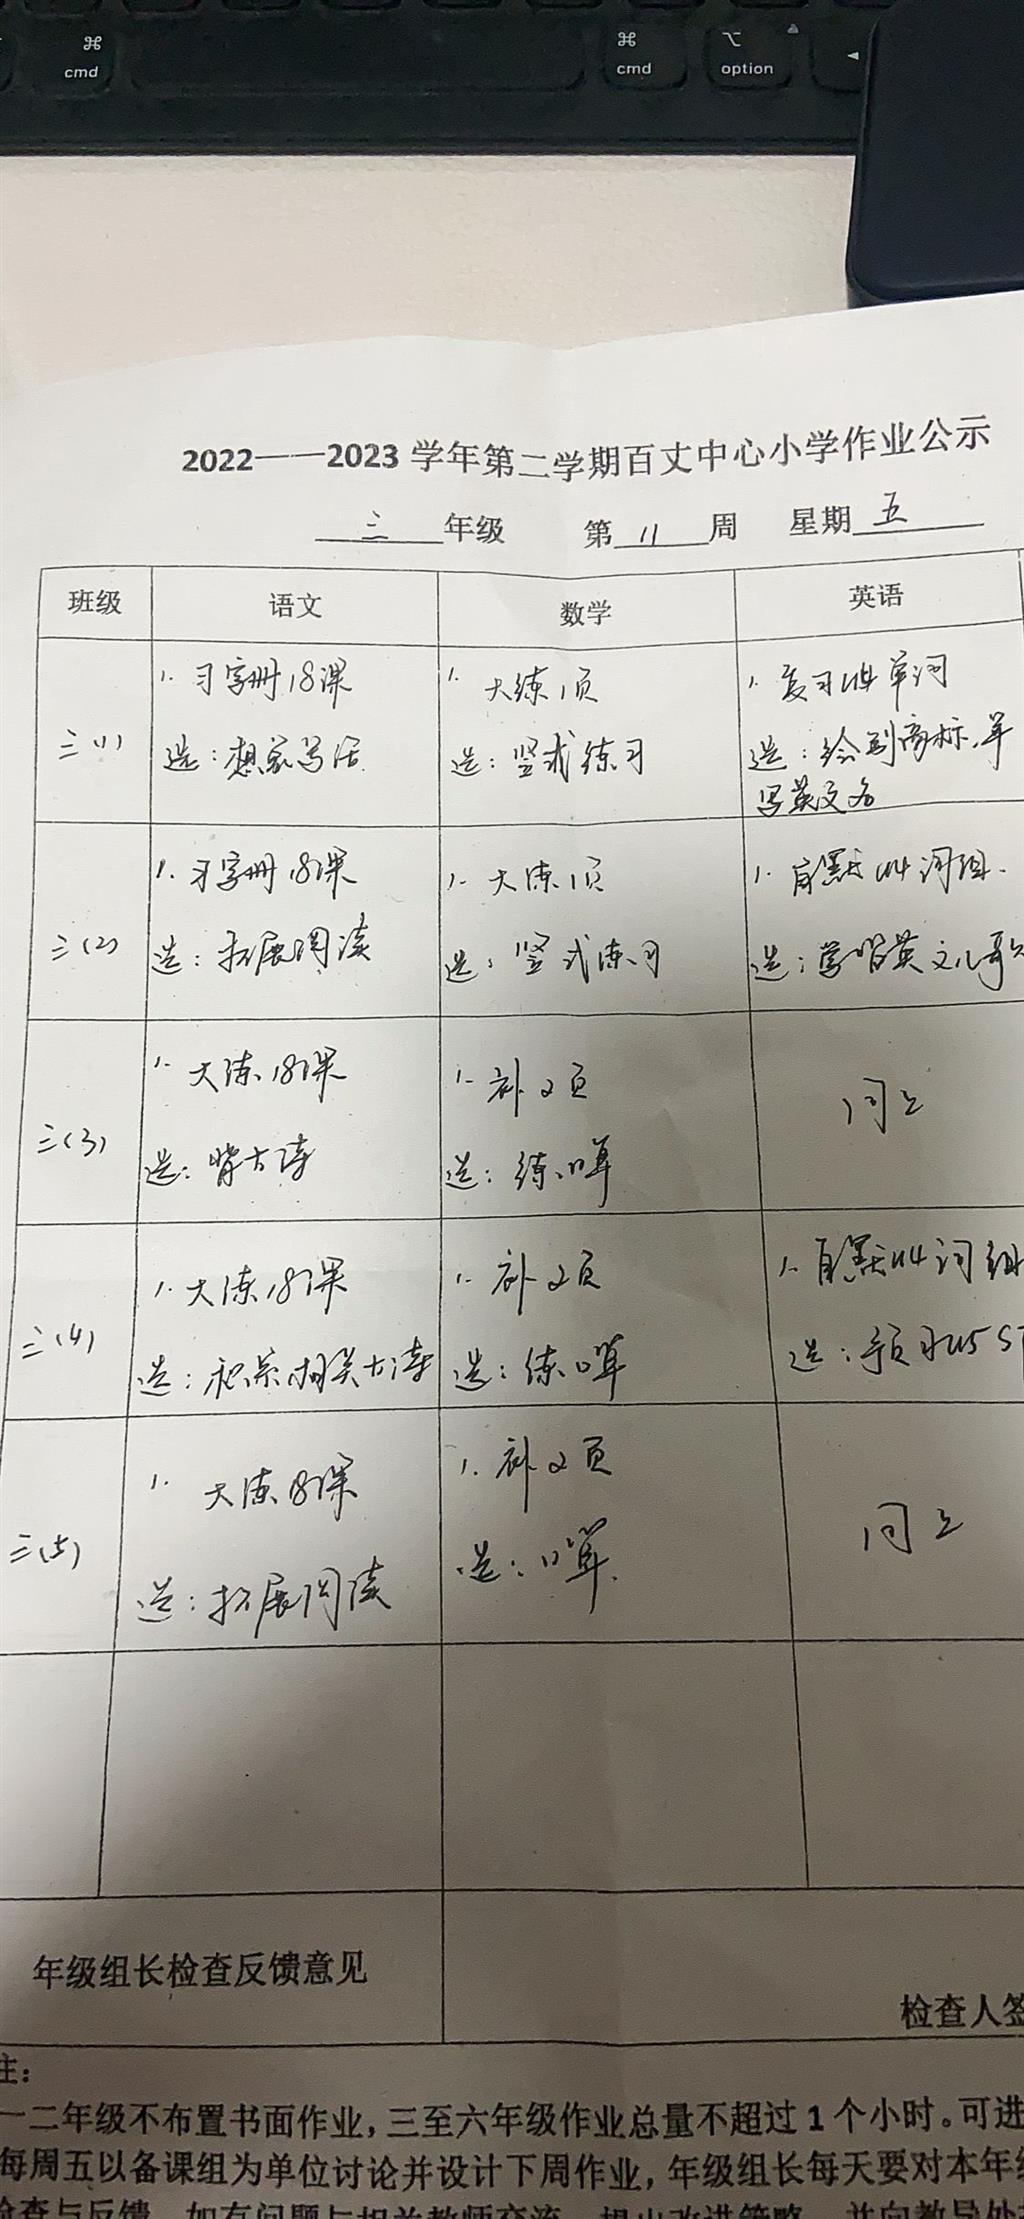 ⌘
cmd
⌘
cmd
⌥
option
2022——2023 学年第二学期百丈中心小学作业公示
三 年级 第 11 周 星期 五
班级 语文 数学 英语
三(1)
1. 习字册18课
选：想象写话
1. 大练1页
选：竖式练习
1. 复习U4单词
选：绘制商标,并
写英文名
三(2)
1. 习字册18课
选：拓展阅读
1. 大练1页
选：竖式练习
1. 自默U4词组.
选：学唱英文儿歌
三(3)
1. 大练18课
选：背古诗
1. 补2页
选：练口算
同上
三(4)
1. 大练18课
选：积累相关古诗
1. 补2页
选：练口算
1. 自默U4词组
选：预习U5 ST
三(5)
1. 大练18课
选：拓展阅读
1. 补2页
选：口算.
同上
年级组长检查反馈意见
检查人签
注：
一二年级不布置书面作业，三至六年级作业总量不超过 1 个小时。可进
每周五以备课组为单位讨论并设计下周作业，年级组长每天要对本年级
检查与反馈，如有问题与相关教师交流，提出改进策略，并向教导处